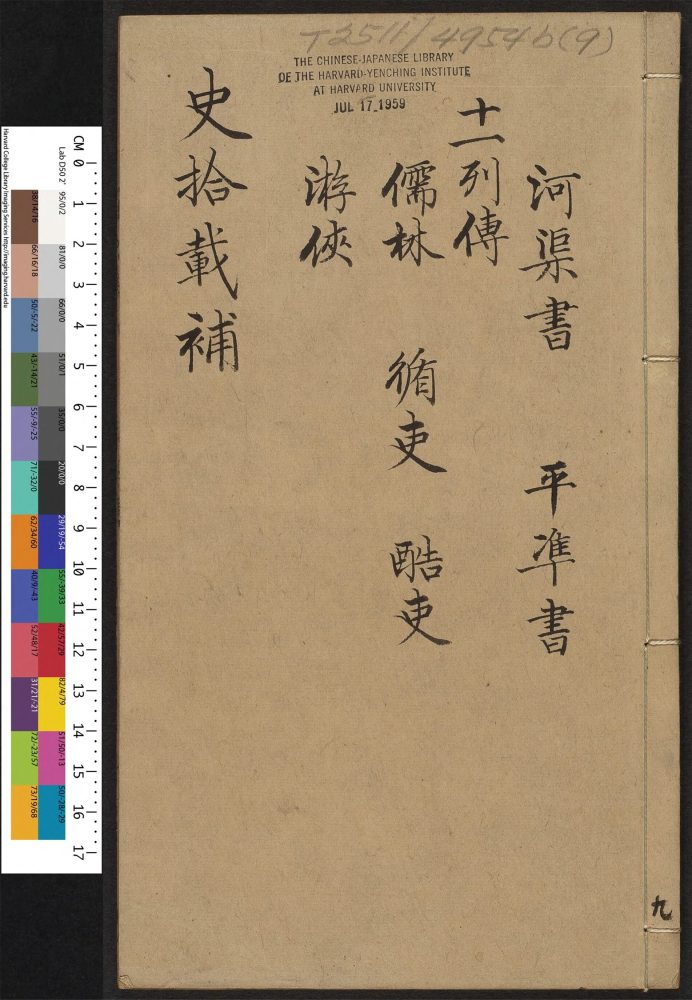 T2511/4954b(9)
THE CHINESE-JAPANESE LIBRARY
OF THE HARVARD-YENCHING INSTITUTE
AT HARVARD UNIVERSITY
JUL 17 1959
河渠書 平準書
十一列傳
儒林 循吏 酷吏
游俠
史拾載補
九
CM 0 1 2 3 4 5 6 7 8 9 10 11 12 13 14 15 16 17
Harvard College Library Imaging Services http://imaging.harvard.edu
Lab D50 2° 95/0/2 81/0/0 66/0/0 51/0/1 35/0/0 20/0/0 29/19/-54 55/-39/33 42/57/29 82/4/79 51/50/-13 50/-28/-29
38/14/16 66/16/18 50/-5/-22 43/-14/21 55/-9/-25 71/-32/0 62/34/60 40/9/-43 52/48/17 31/21/-21 72/-23/57 73/19/68